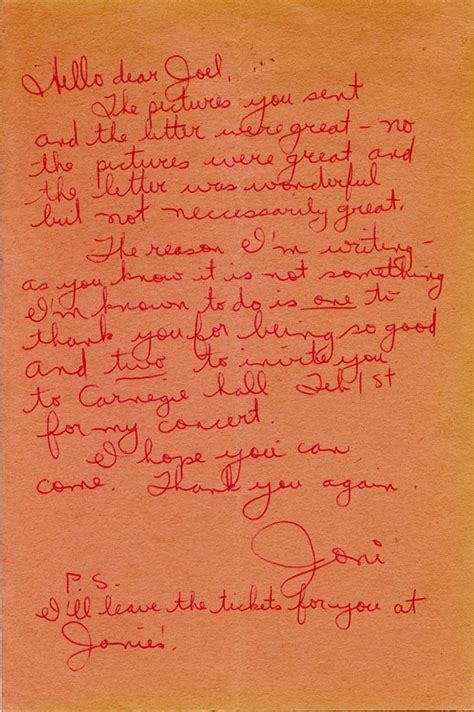 Hello dear Joel,
The pictures you sent
and the letter were great – no
the pictures were great and
the letter was wonderful
but not neccessarily great.
The reason I'm writing –
as you know it is not something
I'm known to do is one to
thank you for being so good
and two to invite you
to Carnegie hall Feb 1st
for my concert.
I hope you can
come. Thank you again
Joni
P.S.
I'll leave the tickets for you at
Janie's.